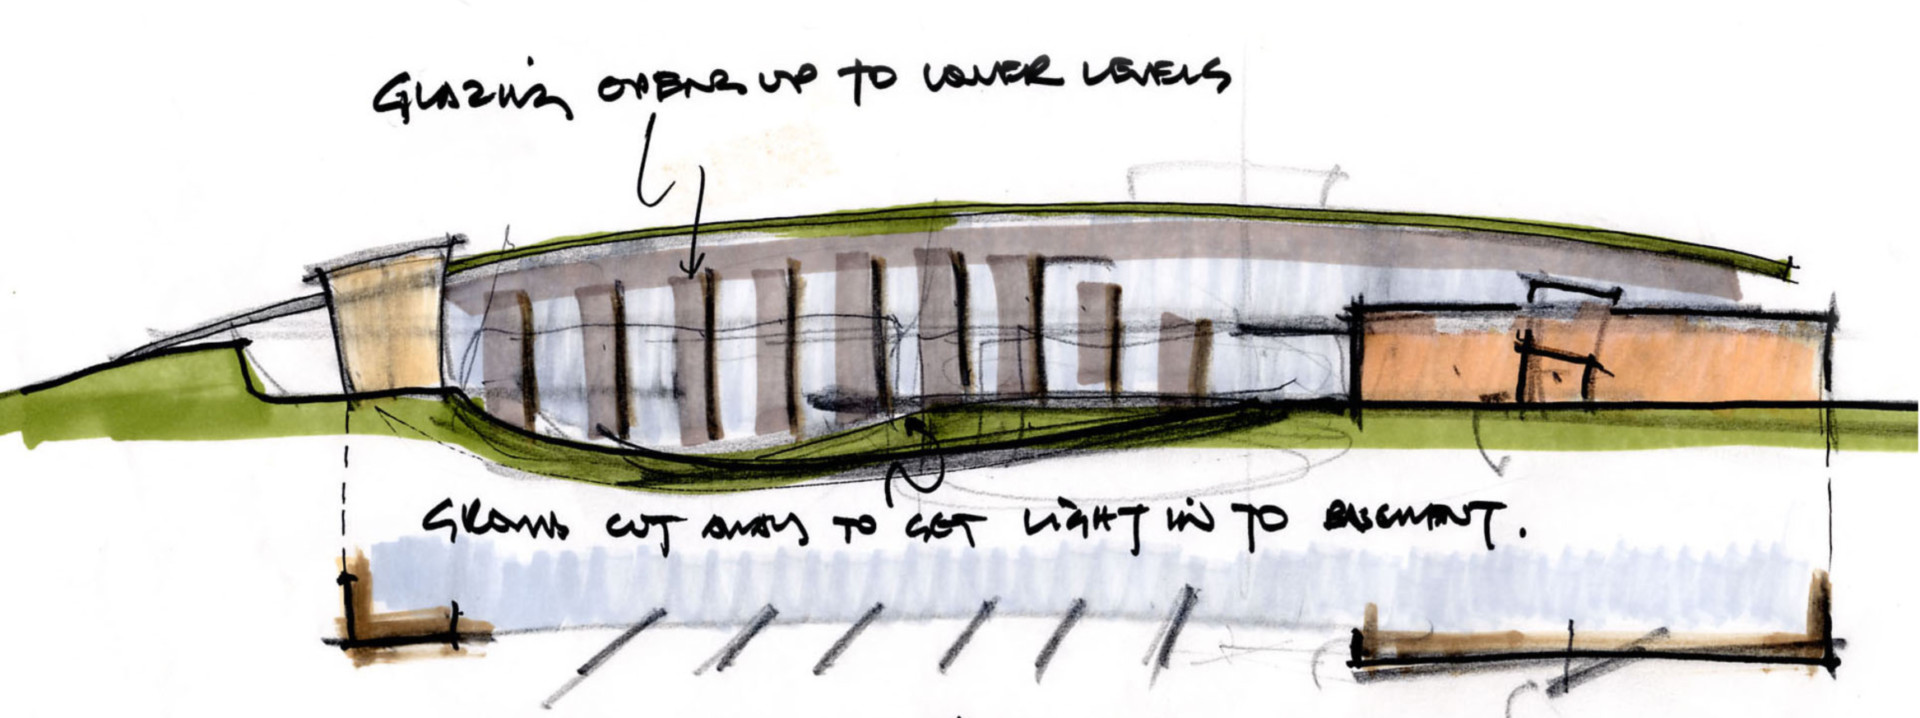 GLAZING OPENS UP TO LOWER LEVELS
GROUND CUT AWAY TO GET LIGHT IN TO BASEMENT.